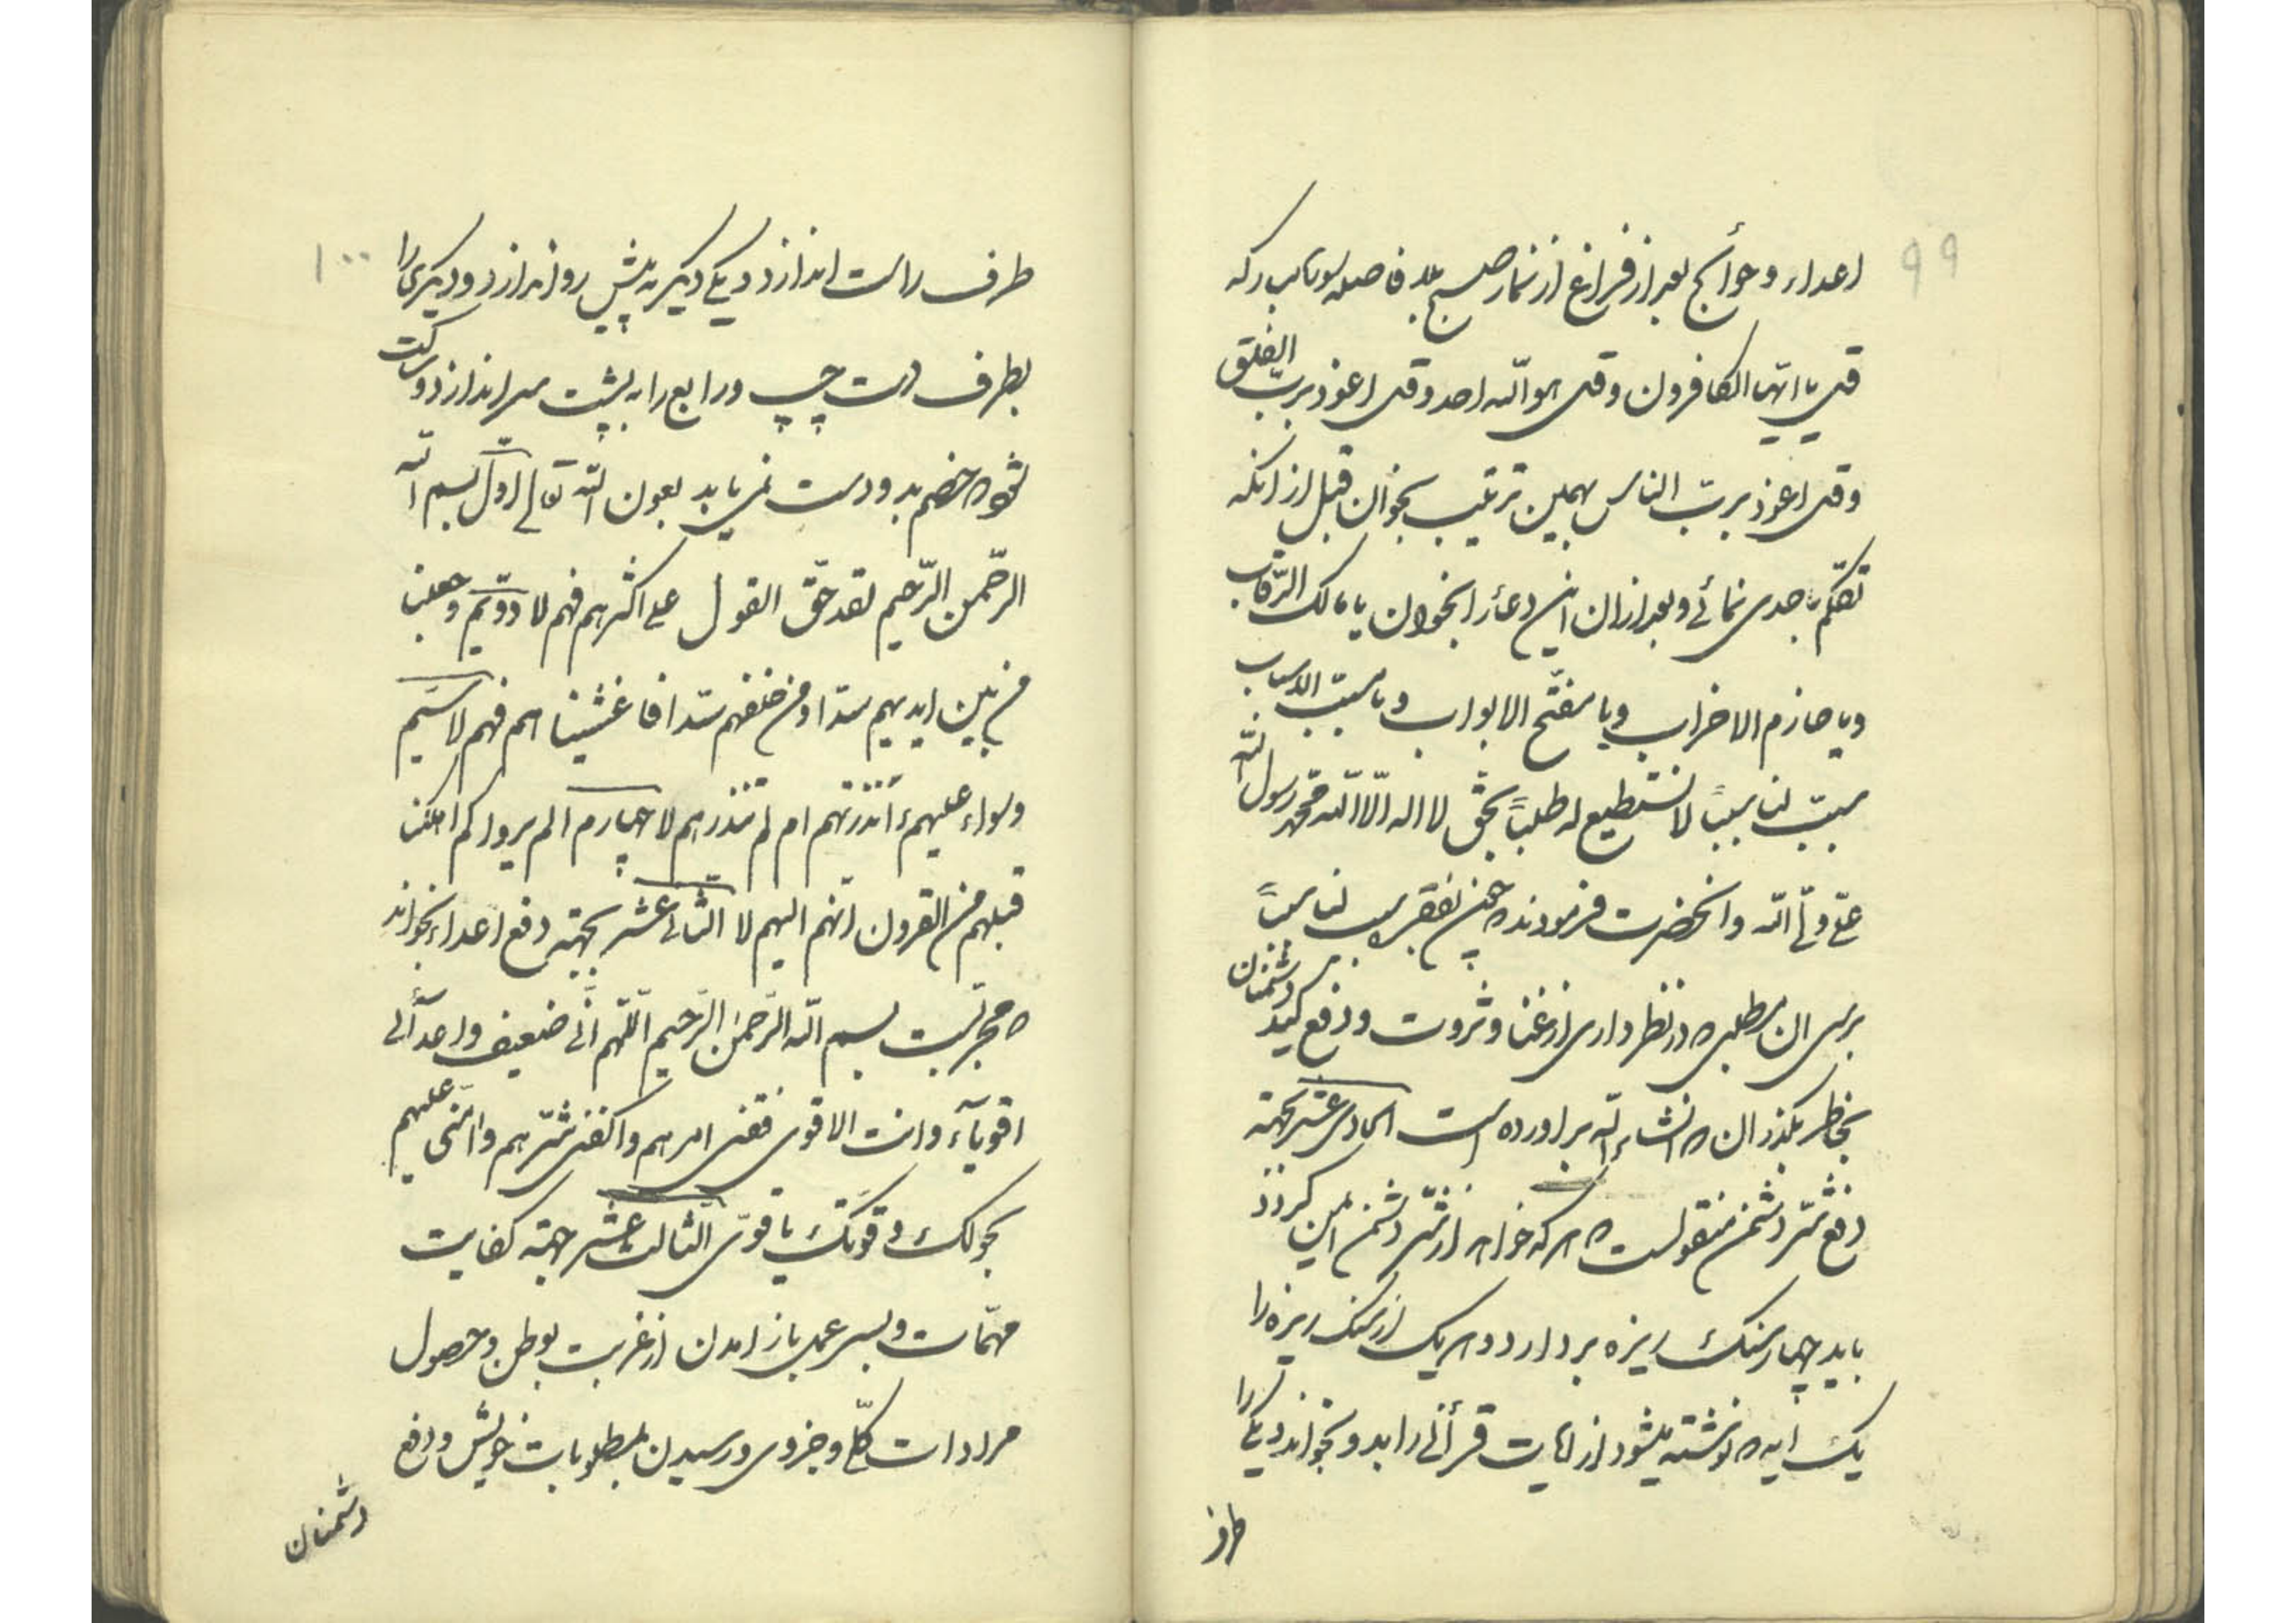 ۹۹
اعداء و حوائج بعد از فراغ از نماز صبح بلا فاصله سوره مبارکه
قل یا ایها الکافرون و قل هو الله احد و قل اعوذ برب الفلق
و قل اعوذ برب الناس بهمین ترتیب بخوان قبل از انکه
تکلم با احدی نمائے و بعد از ان این دعا را بخوان یا مالک الرقاب
و یا هازم الاحزاب و یا مفتح الابواب و یا مسبب الاسباب
سبب لنا سبباً لا نستطیع له طلباً بحق لا اله الا الله محمد رسول الله
علی ولی الله و انحضرت فرمودند که چون بفقره سبب لنا سبباً
برسی ان مطلبی که در نظر داری از غنا و ثروت و دفع کید دشمنان
بخاطر بگذران که انشاء الله براورده است الحادی عشر بجهته
دفع شر دشمن منقولست که هر که خواهد از شر دشمن ایمن گردد
باید چهار سنک ریزه بردارد و هر یک از سنک ریزه را
یک ایه که نوشته میشود از ایات قرآنی را بدو بخواند و یکے را
طرف
۱۰۰
طرف راست اندازد و یکے دیگر به پیش رو اندازد و دیگری را
بطرف دست چپ و رابع را به پشت سر اندازد و ساکت
شود که خصم بدو دست نمی یابد بعون الله تعالی اول بسم الله
الرحمن الرحیم لقد حق القول علی اکثرهم فهم لا دویم و جعلنا
من بین ایدیهم سدا و من خلفهم سدا فاغشیناهم فهم لا سیم
و سواء علیهم ءانذرتهم ام لم تنذرهم لا چهارم الم یروا کم اهلکنا
قبلهم من القرون انهم الیهم لا الثانی عشر بجهته دفع اعداء بخواند
که مجربست بسم الله الرحمن الرحیم اللهم انی ضعیف و اعدآئی
اقویآء و انت الاقوی فقنی امرهم و اکفنی شرهم و اعنی علیهم
بحولک و قوتک یا قوی الثالث عشر جهته کفایت
مهمات و بسرعت باز امدن از غربت بوطن و حصول
مرادات کلی و جزوی و رسیدن بمطلوبات خویش و دفع
دشمنان